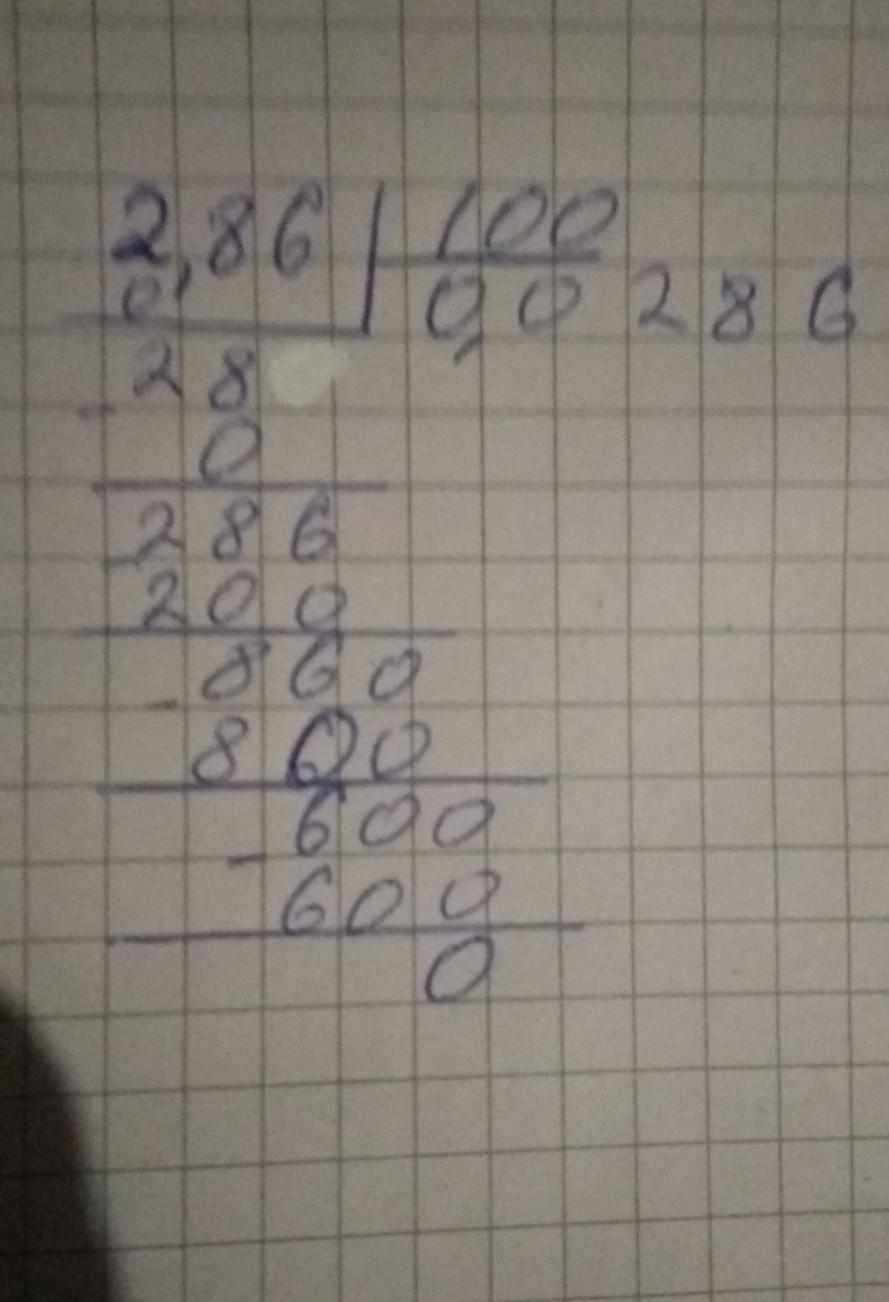 2,86 100
0, 0,0286
28
- 0
286
200
860
- 800
600
- 600
0